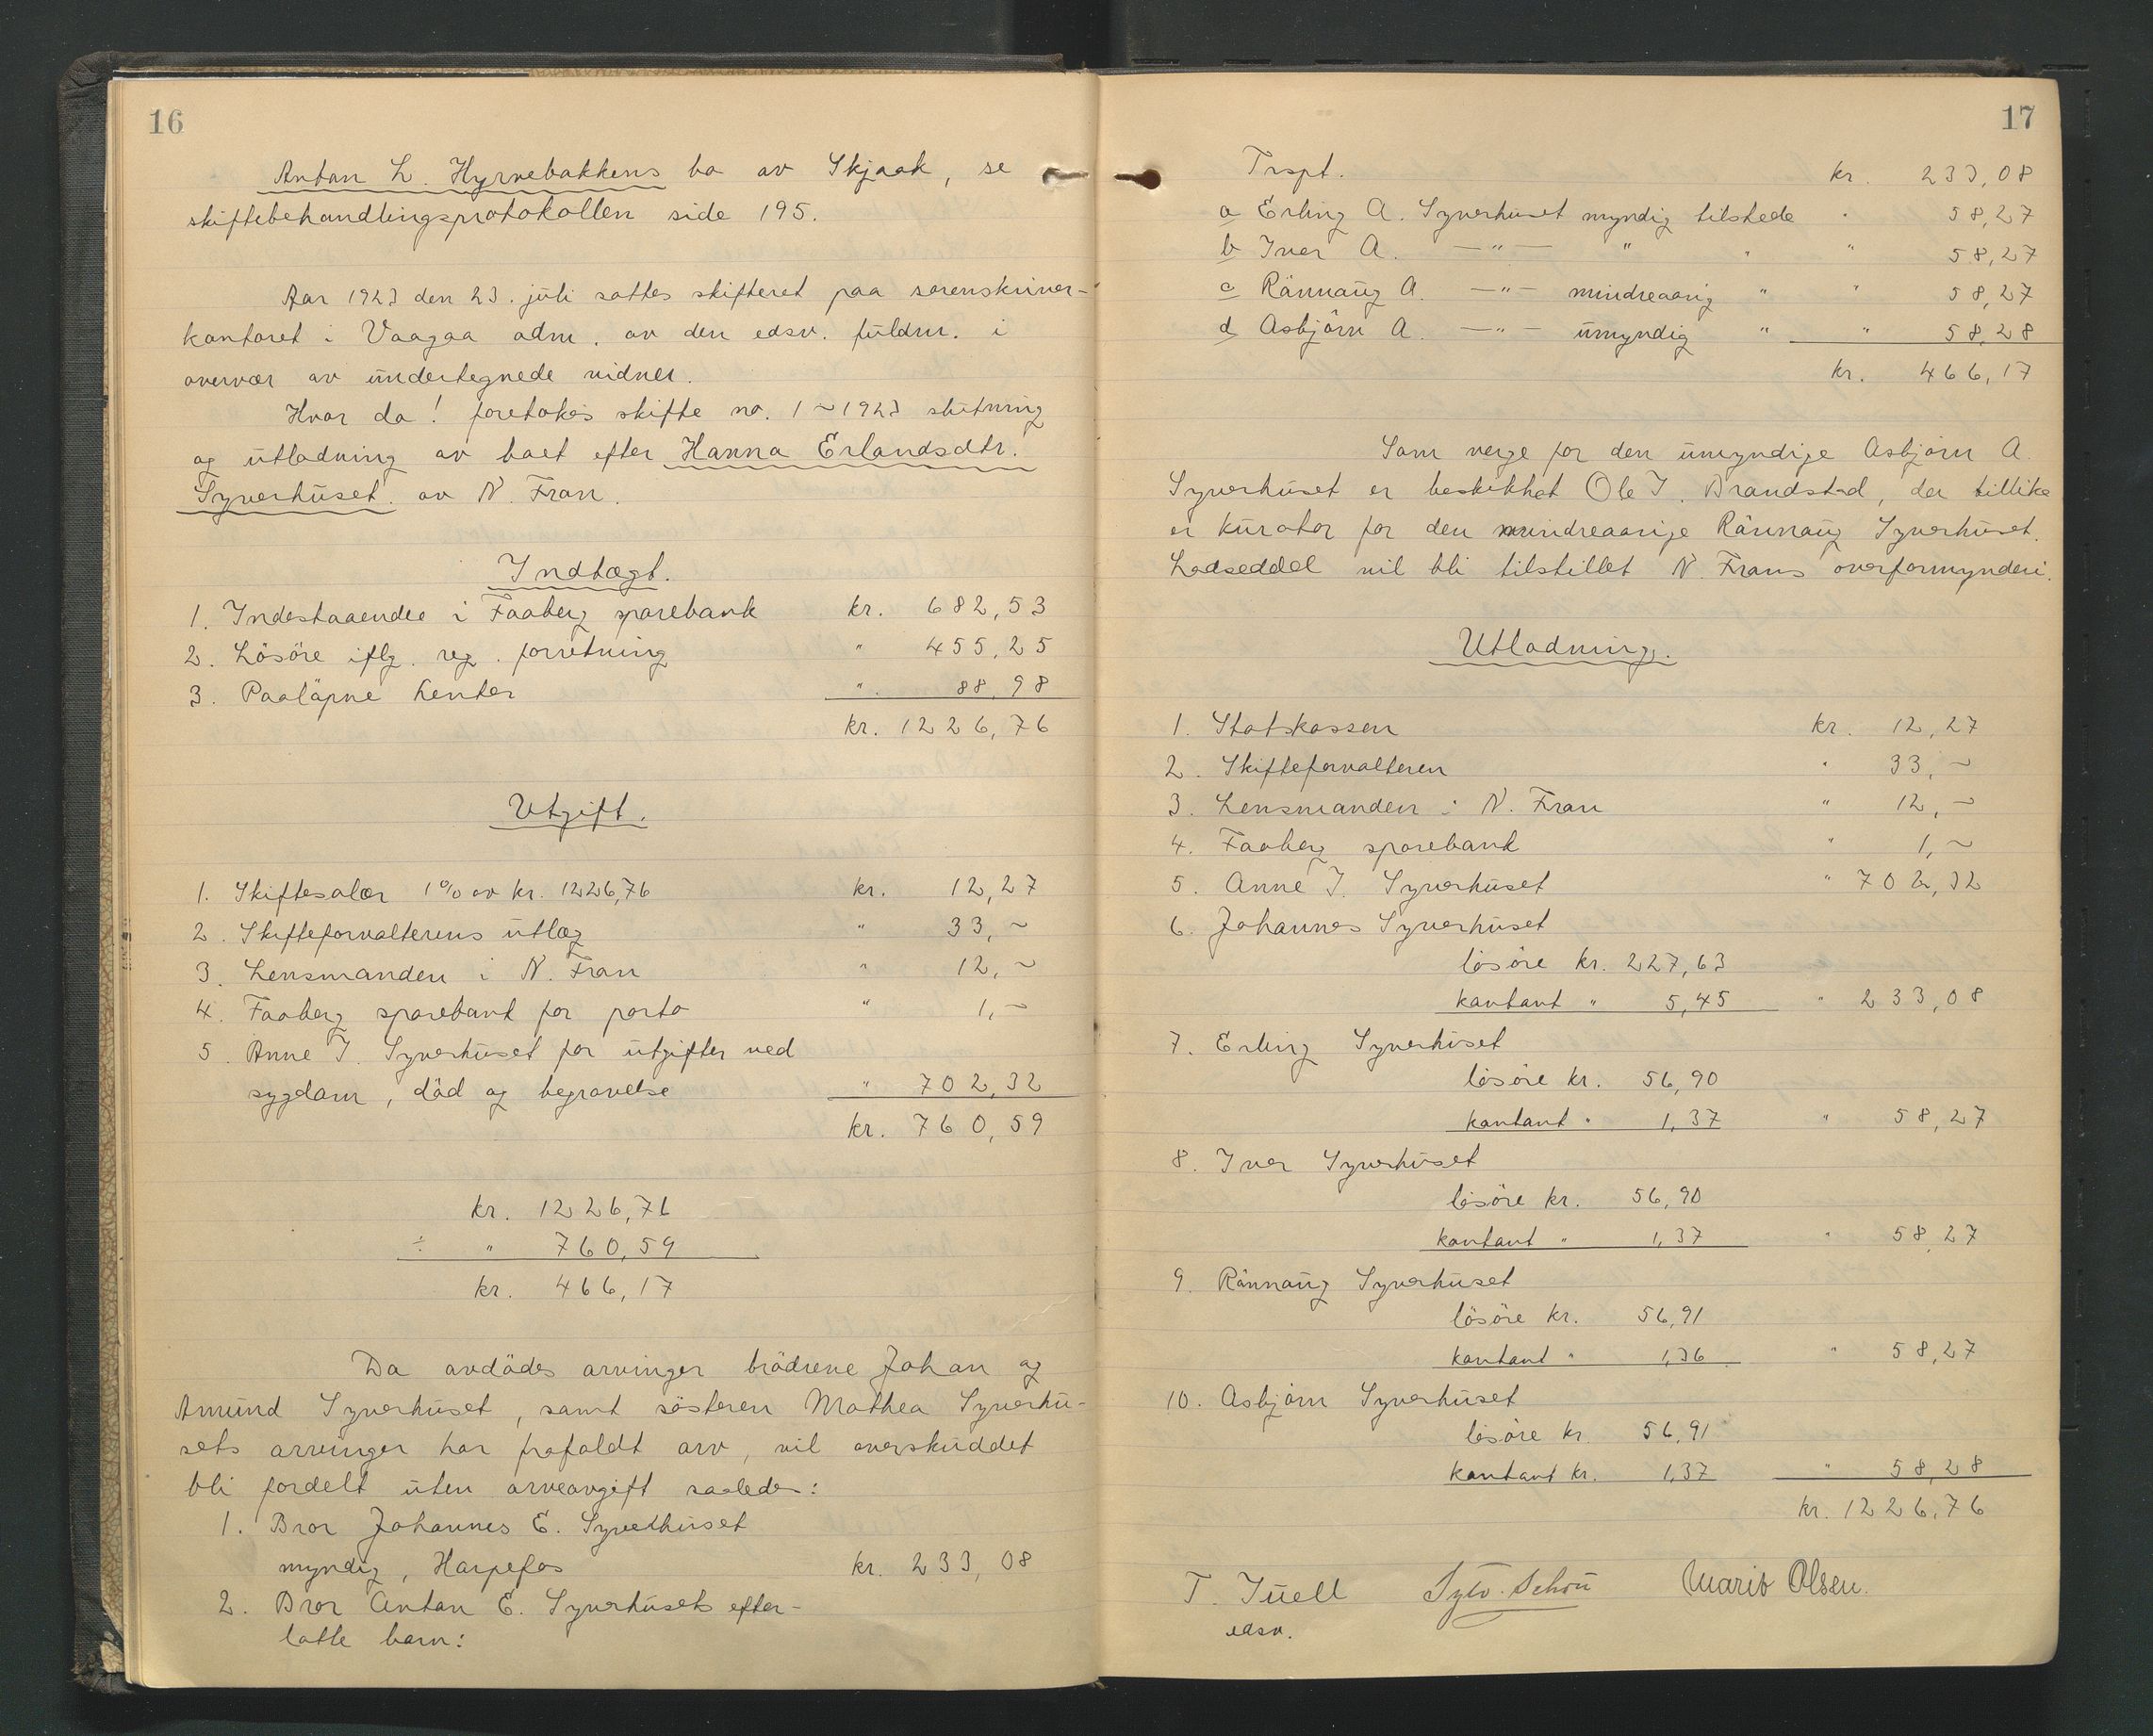 16
Anton L. Hyrvebakkens bo av Skjaak, se
skiftebehandlingsprotokollen side 195.
Aar 1923 den 23. juli sattes skifteret paa sorenskriver-
kontoret i Vaagaa adm. av den edsv. fuldm. i
overvær av undertegnede vidner.
Hvor da! foretokes skifte no. 1 ~ 1923 slutning
og utlodning av boet efter Hanna Erlandsdtr.
Syverhuset av N. Fron.
Indtægt.
1. Indestaaende i Faaberg sparebank kr. 682,53
2. Lösöre iflg. reg. forretning " 455,25
3. Paaløpne renter " 88,98
kr. 1226,76
Utgift.
1. Skiftesalær 1% av kr. 1226,76 kr. 12,27
2. Skifteforvalterens utlæg " 33,~
3. Lensmanden i N. Fron " 12,~
4. Faaberg sparebank for porto " 1,~
5. Anne I. Syverhuset for utgifter ved
sygdom, död og begravelse " 702,32
kr. 760,59
kr. 1226,76
÷ " 760,59
kr. 466,17
Da avdödes arvinger brödrene Johan og
Amund Syverhuset, samt sösteren Mathea Syverhu-
sets arvinger har frafaldt arv, vil overskuddet
bli fordelt uten arveavgift saaledes:
1. Bror Johannes E. Syverhuset
myndig, Harpefos kr. 233,08
2. Bror Anton E. Syverhusets efter-
latte barn:
17
Trspt. kr. 233,08
a Erling A. Syverhuset myndig tilstede " 58,27
b Iver A. —"— " " " 58,27
c Rönnaug A. —"— mindreaarig " " 58,27
d Asbjörn A. —"— umyndig " " 58,28
kr. 466,17
Som verge for den umyndige Asbjörn A.
Syverhuset er beskikket Ole I. Brandstad, der tillike
er kurator for den mindreaarige Rönnaug Syverhuset.
Lodseddel vil bli tilstillet N. Frons overformynderi.
Utlodning.
1. Statskassen kr. 12,27
2. Skifteforvalteren " 33,~
3. Lensmanden i N. Fron " 12,~
4. Faaberg sparebank " 1,~
5. Anne I. Syverhuset " 702,32
6. Johannes Syverhuset
lösöre kr. 227,63
kontant " 5,45 " 233,08
7. Erling Syverhuset
lösöre kr. 56,90
kontant " 1,37 " 58,27
8. Iver Syverhuset
lösöre kr. 56,90
kontant " 1,37 " 58,27
9. Rönnaug Syverhuset
lösöre kr. 56,91
kontant " 1,36 " 58,27
10. Asbjörn Syverhuset
lösöre kr. 56,91
kontant kr. 1,37 " 58,28
kr. 1226,76
T. Juell Sylv. Schou Marit Olsen.
edsv.